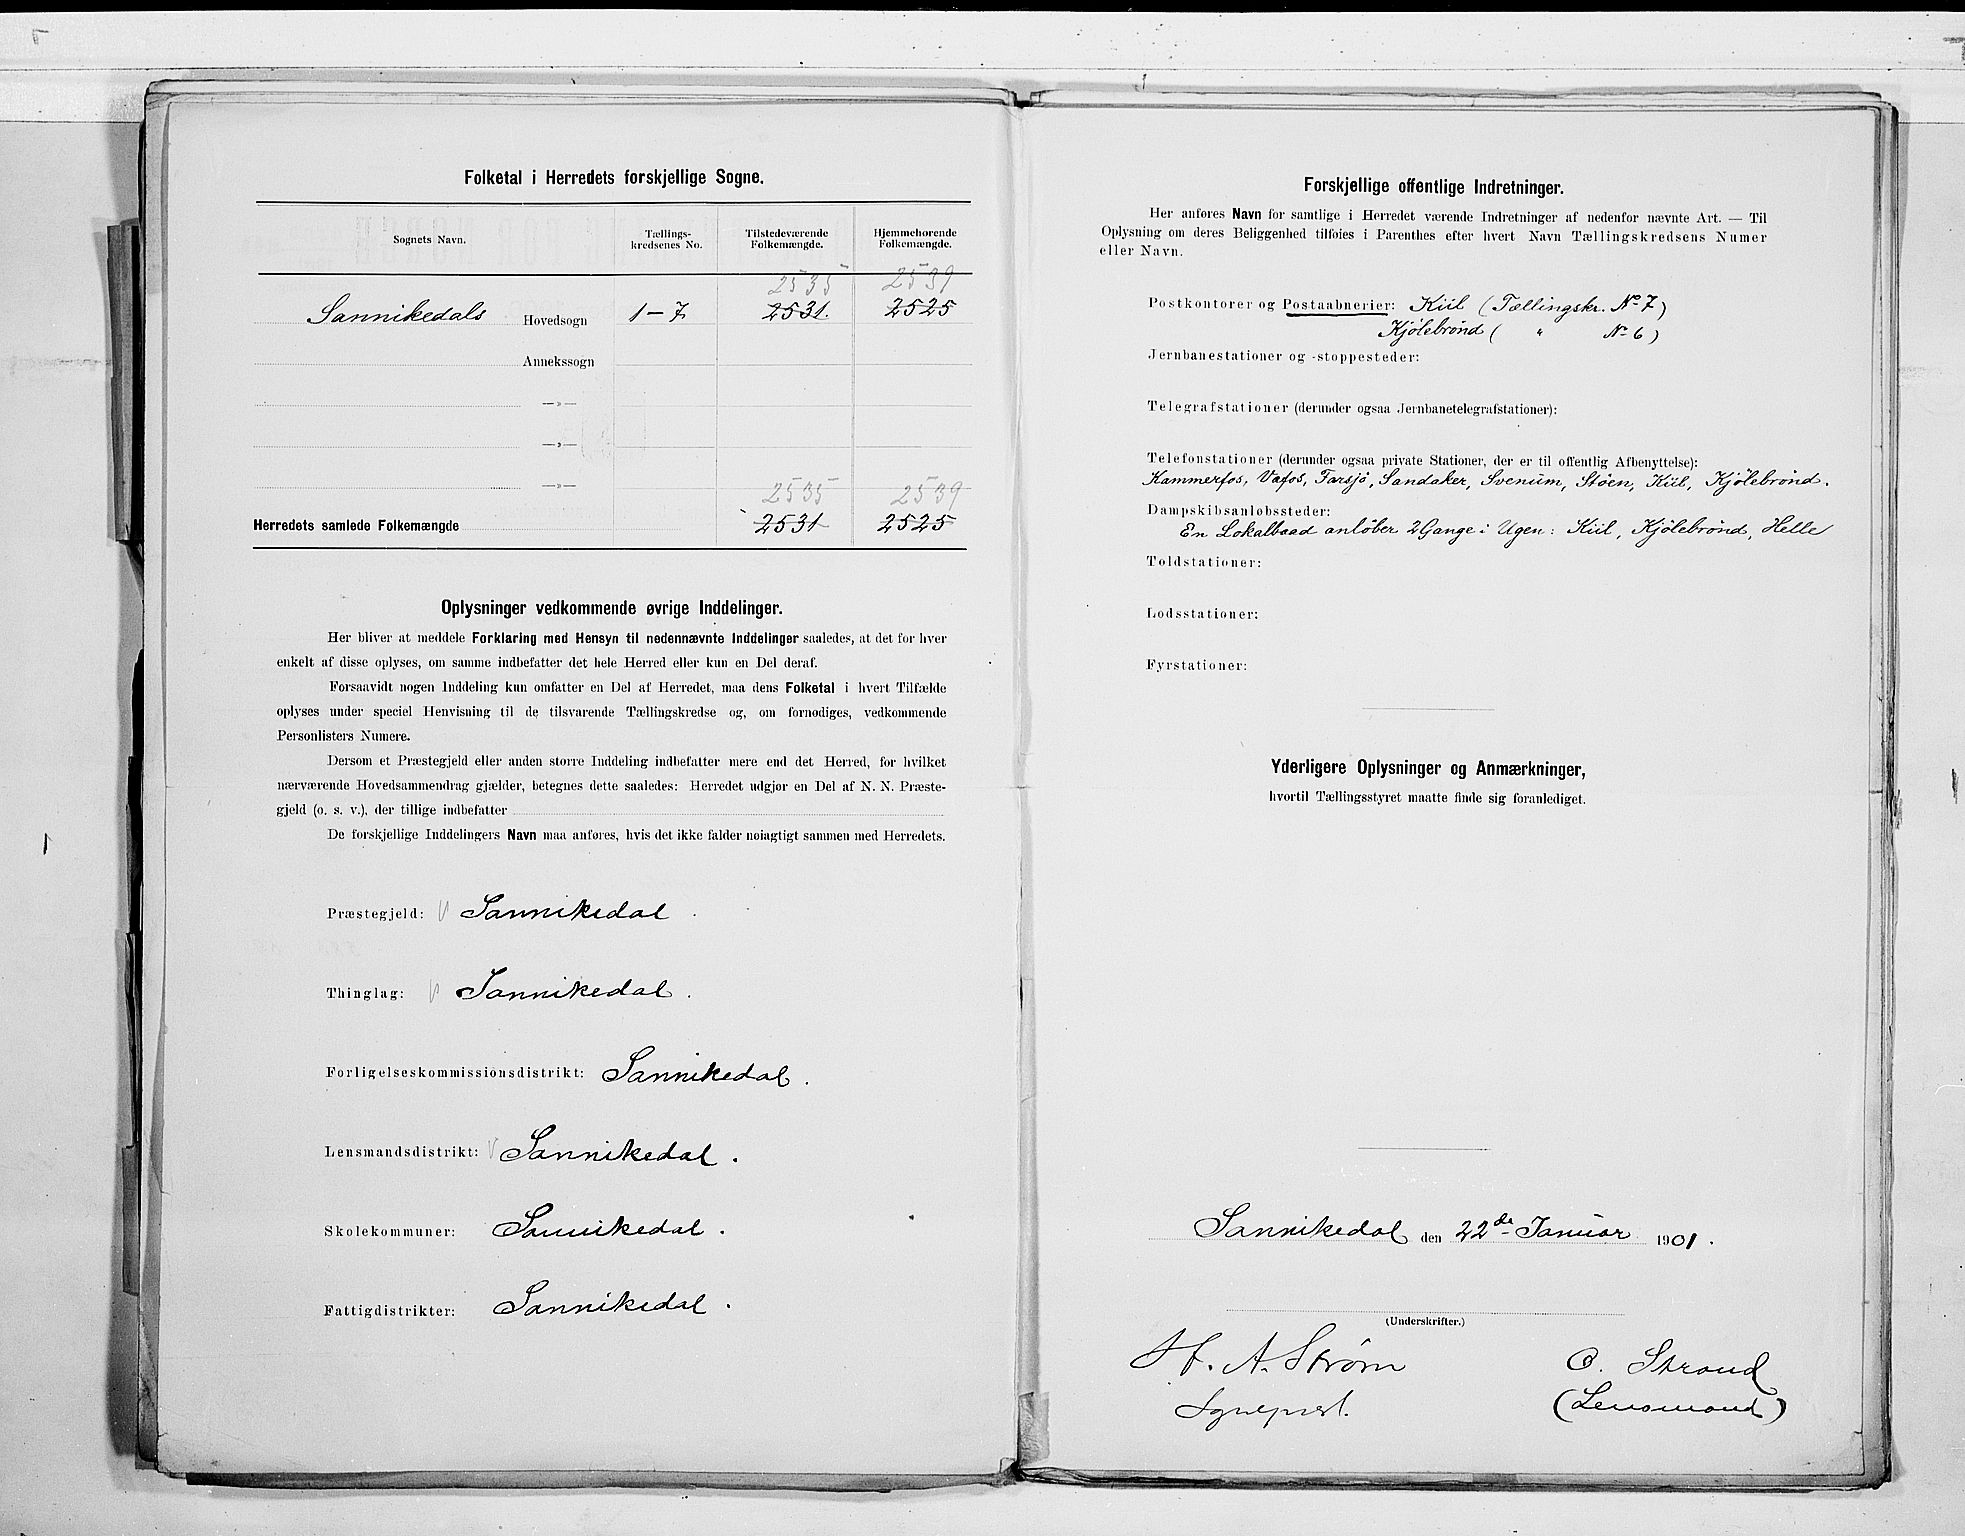 Folketal i Herredets forskjellige Sogne.
Sognets Navn.
Tællings-
kredsenes No.
Tilstedeværende
Folkemængde.
Hjemmehørende
Folkemængde.
2535 2539
Sannikedals Hovedsogn 1-7 2531. 2525
Annekssogn
—»—
—»—
—»—
2535 2539
Herredets samlede Folkemængde 2531 2525
Oplysninger vedkommende øvrige Inddelinger.
Her bliver at meddele Forklaring med Hensyn til nedennævnte Inddelinger saaledes, at det for hver
enkelt af disse oplyses, om samme indbefatter det hele Herred eller kun en Del deraf.
Forsaavidt nogen Inddeling kun omfatter en Del af Herredet, maa dens Folketal i hvert Tilfælde
oplyses under speciel Henvisning til de tilsvarende Tællingskredse og, om fornødiges, vedkommende
Personlisters Numere.
Dersom et Præstegjeld eller anden større Inddeling indbefatter mere end det Herred, for hvilket
nærværende Hovedsammendrag gjælder, betegnes dette saaledes: Herredet udgjør en Del af N. N. Præste-
gjeld (o. s. v.), der tillige indbefatter
De forskjellige Inddelingers Navn maa anføres, hvis det ikke falder nøiagtigt sammen med Herredets.
Præstegjeld: Sannikedal.
Thinglag: Sannikedal.
Forligelseskommissionsdistrikt: Sannikedal.
Lensmandsdistrikt: Sannikedal.
Skolekommuner: Sannikedal.
Fattigdistrikter: Sannikedal.
Forskjellige offentlige Indretninger.
Her anføres Navn for samtlige i Herredet værende Indretninger af nedenfor nævnte Art. — Til
Oplysning om deres Beliggenhed tilføies i Parenthes efter hvert Navn Tællingskredsens Numer
eller Navn.
Postkontorer og Postaabnerier: Kiil (Tællingskr. No 7)
Kjølebrønd ( " No 6)
Jernbanestationer og -stoppesteder:
Telegrafstationer (derunder ogsaa Jernbanetelegrafstationer):
Telefonstationer (derunder ogsaa private Stationer, der er til offentlig Afbenyttelse):
Kammerfos, Vafos, Farsjø, Sandaker, Svenum, Støen, Kiil, Kjølebrønd.
Dampskibsanløbssteder:
En Lokalbaad anløber 2 Gange i Ugen: Kiil, Kjølebrønd, Helle
Toldstationer:
Lodsstationer:
Fyrstationer:
Yderligere Oplysninger og Anmærkninger,
hvortil Tællingsstyret maatte finde sig foranlediget.
Sannikedal den 22de Januar 1901.
(Underskrifter.)
H. A. Strøm O. Strand
Sognepræst. (Lensmand)